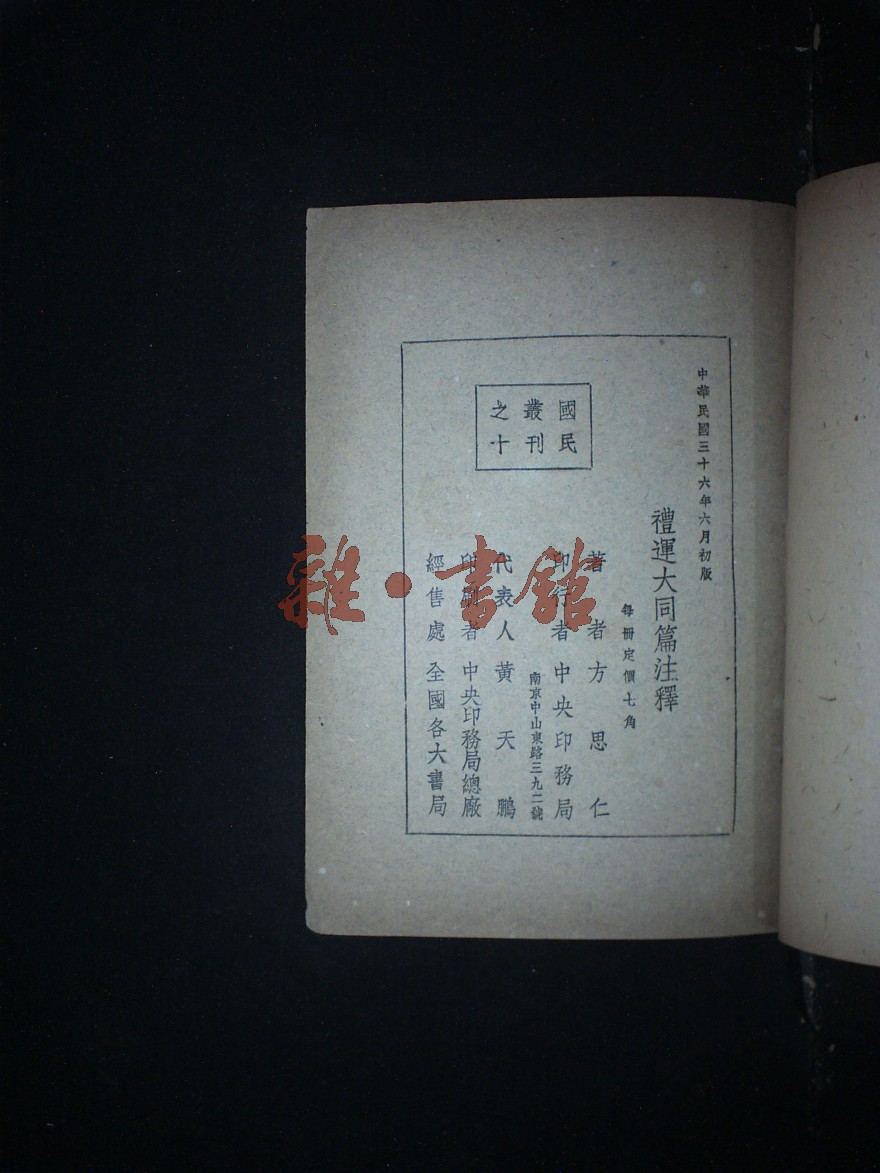 中華民國三十六年六月初版
禮運大同篇注釋
每冊定價七角
著者方思仁
印行者中央印務局
南京中山東路三九二號
代表人黃天鵬
印刷者中央印務局總廠
經售處全國各大書局
國民
叢刊
之十
雜·書館